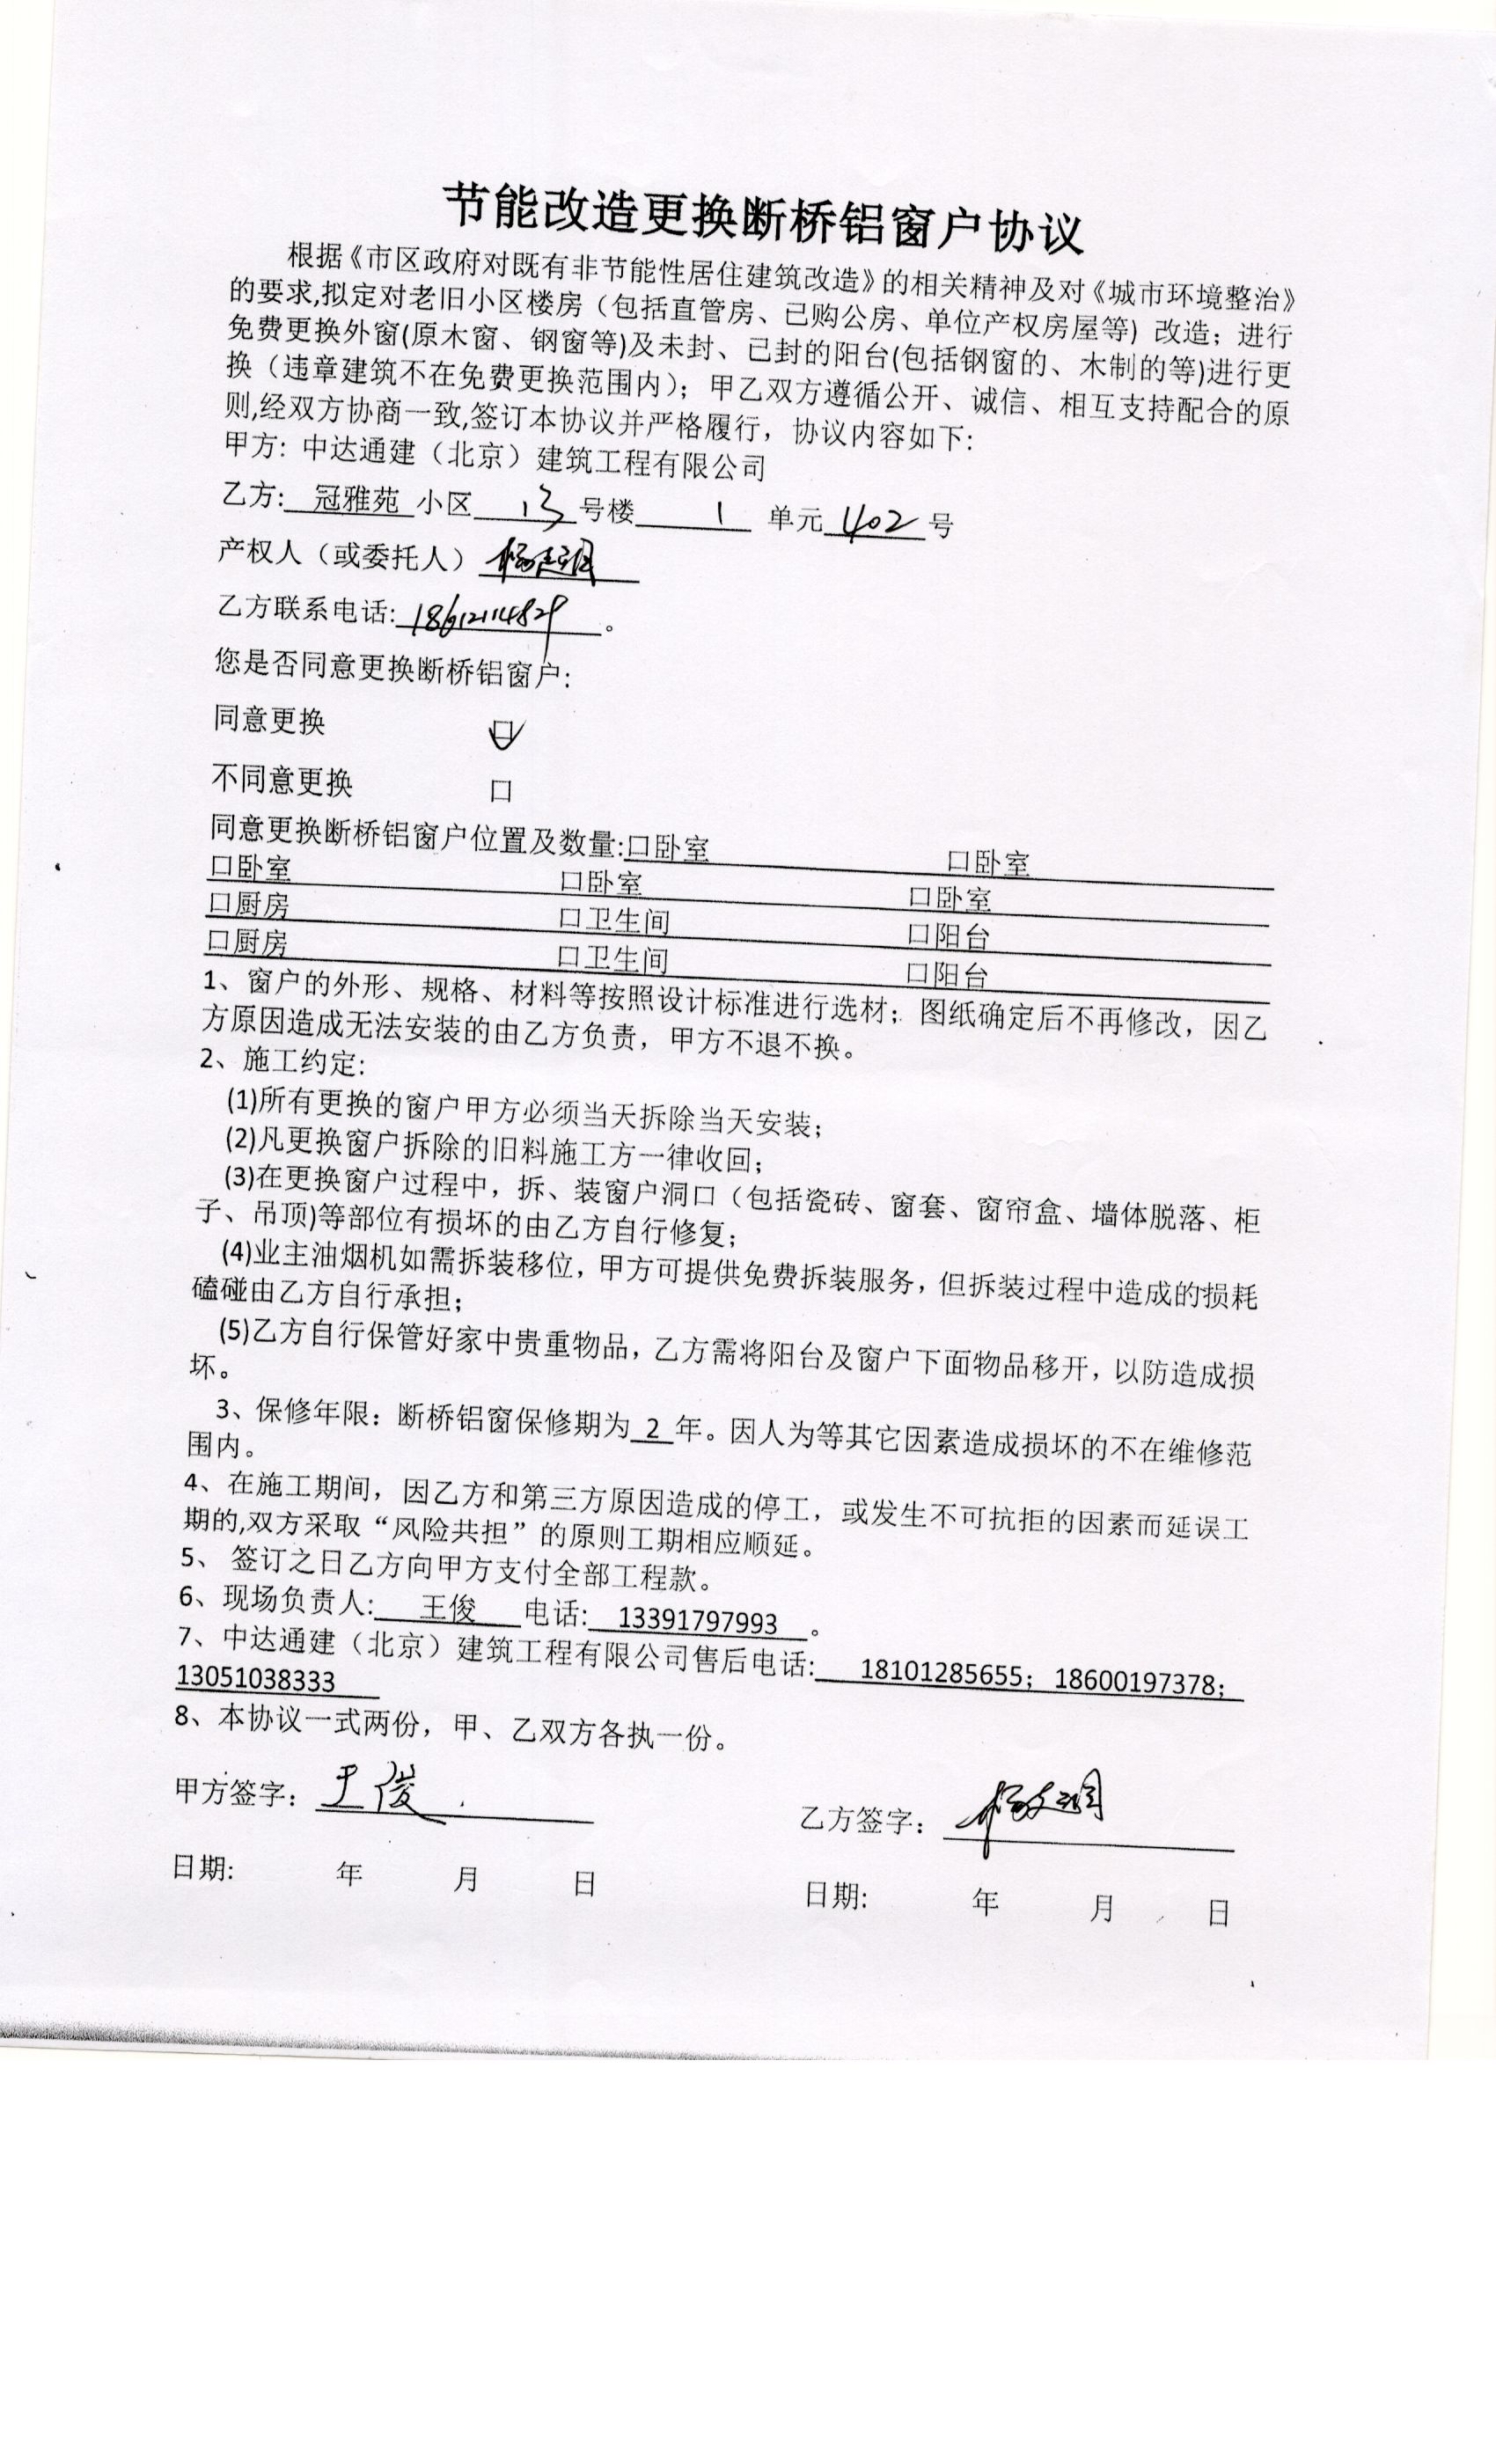 节能改造更换断桥铝窗户协议
根据《市区政府对既有非节能性居住建筑改造》的相关精神及对《城市环境整治》
的要求,拟定对老旧小区楼房（包括直管房、已购公房、单位产权房屋等）改造；进行
免费更换外窗(原木窗、钢窗等)及未封、已封的阳台(包括钢窗的、木制的等)进行更
换（违章建筑不在免费更换范围内）；甲乙双方遵循公开、诚信、相互支持配合的原
则,经双方协商一致,签订本协议并严格履行，协议内容如下:
甲方: 中达通建（北京）建筑工程有限公司
乙方: 冠雅苑 小区 13 号楼 1 单元 402 号
产权人（或委托人）
乙方联系电话: 18612114829 。
您是否同意更换断桥铝窗户:
同意更换 ☑
不同意更换 口
同意更换断桥铝窗户位置及数量:口卧室 口卧室
口卧室 口卧室 口卧室
口厨房 口卫生间 口阳台
口厨房 口卫生间 口阳台
1、窗户的外形、规格、材料等按照设计标准进行选材；图纸确定后不再修改，因乙
方原因造成无法安装的由乙方负责，甲方不退不换。
2、施工约定:
(1)所有更换的窗户甲方必须当天拆除当天安装；
(2)凡更换窗户拆除的旧料施工方一律收回；
(3)在更换窗户过程中，拆、装窗户洞口（包括瓷砖、窗套、窗帘盒、墙体脱落、柜
子、吊顶)等部位有损坏的由乙方自行修复；
(4)业主油烟机如需拆装移位，甲方可提供免费拆装服务，但拆装过程中造成的损耗
磕碰由乙方自行承担；
(5)乙方自行保管好家中贵重物品，乙方需将阳台及窗户下面物品移开，以防造成损
坏。
3、保修年限：断桥铝窗保修期为 2 年。因人为等其它因素造成损坏的不在维修范
围内。
4、在施工期间，因乙方和第三方原因造成的停工，或发生不可抗拒的因素而延误工
期的,双方采取“风险共担”的原则工期相应顺延。
5、 签订之日乙方向甲方支付全部工程款。
6、现场负责人: 王俊 电话: 13391797993 。
7、中达通建（北京）建筑工程有限公司售后电话: 18101285655；18600197378；
13051038333
8、本协议一式两份，甲、乙双方各执一份。
甲方签字： 王俊 乙方签字：
日期: 年 月 日 日期: 年 月 日